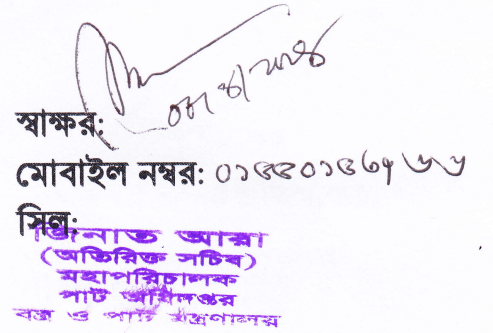 স্বাক্ষর:
মোবাইল নম্বর:
সিল:
জিনাত আরা
(অতিরিক্ত সচিব)
মহাপরিচালক
পাট অধিদপ্তর
বস্ত্র ও পাট মন্ত্রণালয়